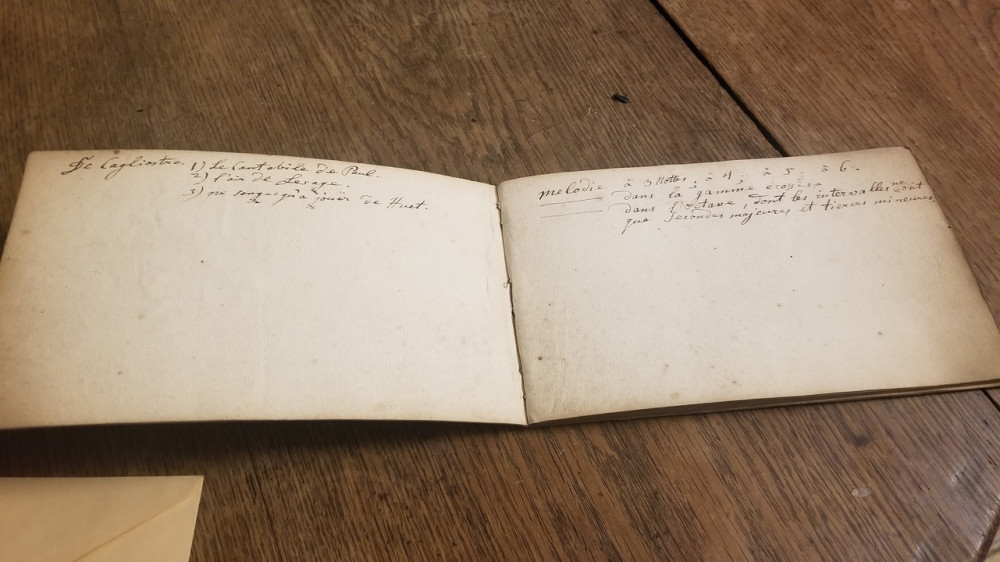 De Cagliostre. 1) Le Cantabile de Paul.
2) l'air de Lesage.
3) ne songes qu'a jouir de Huet.
melodie à 3 Nottes, à 4, à 5, à 6.
dans la gamme
dans l'octave, dont les intervalles ne sont
que Secondes majeures et tierces mineures,